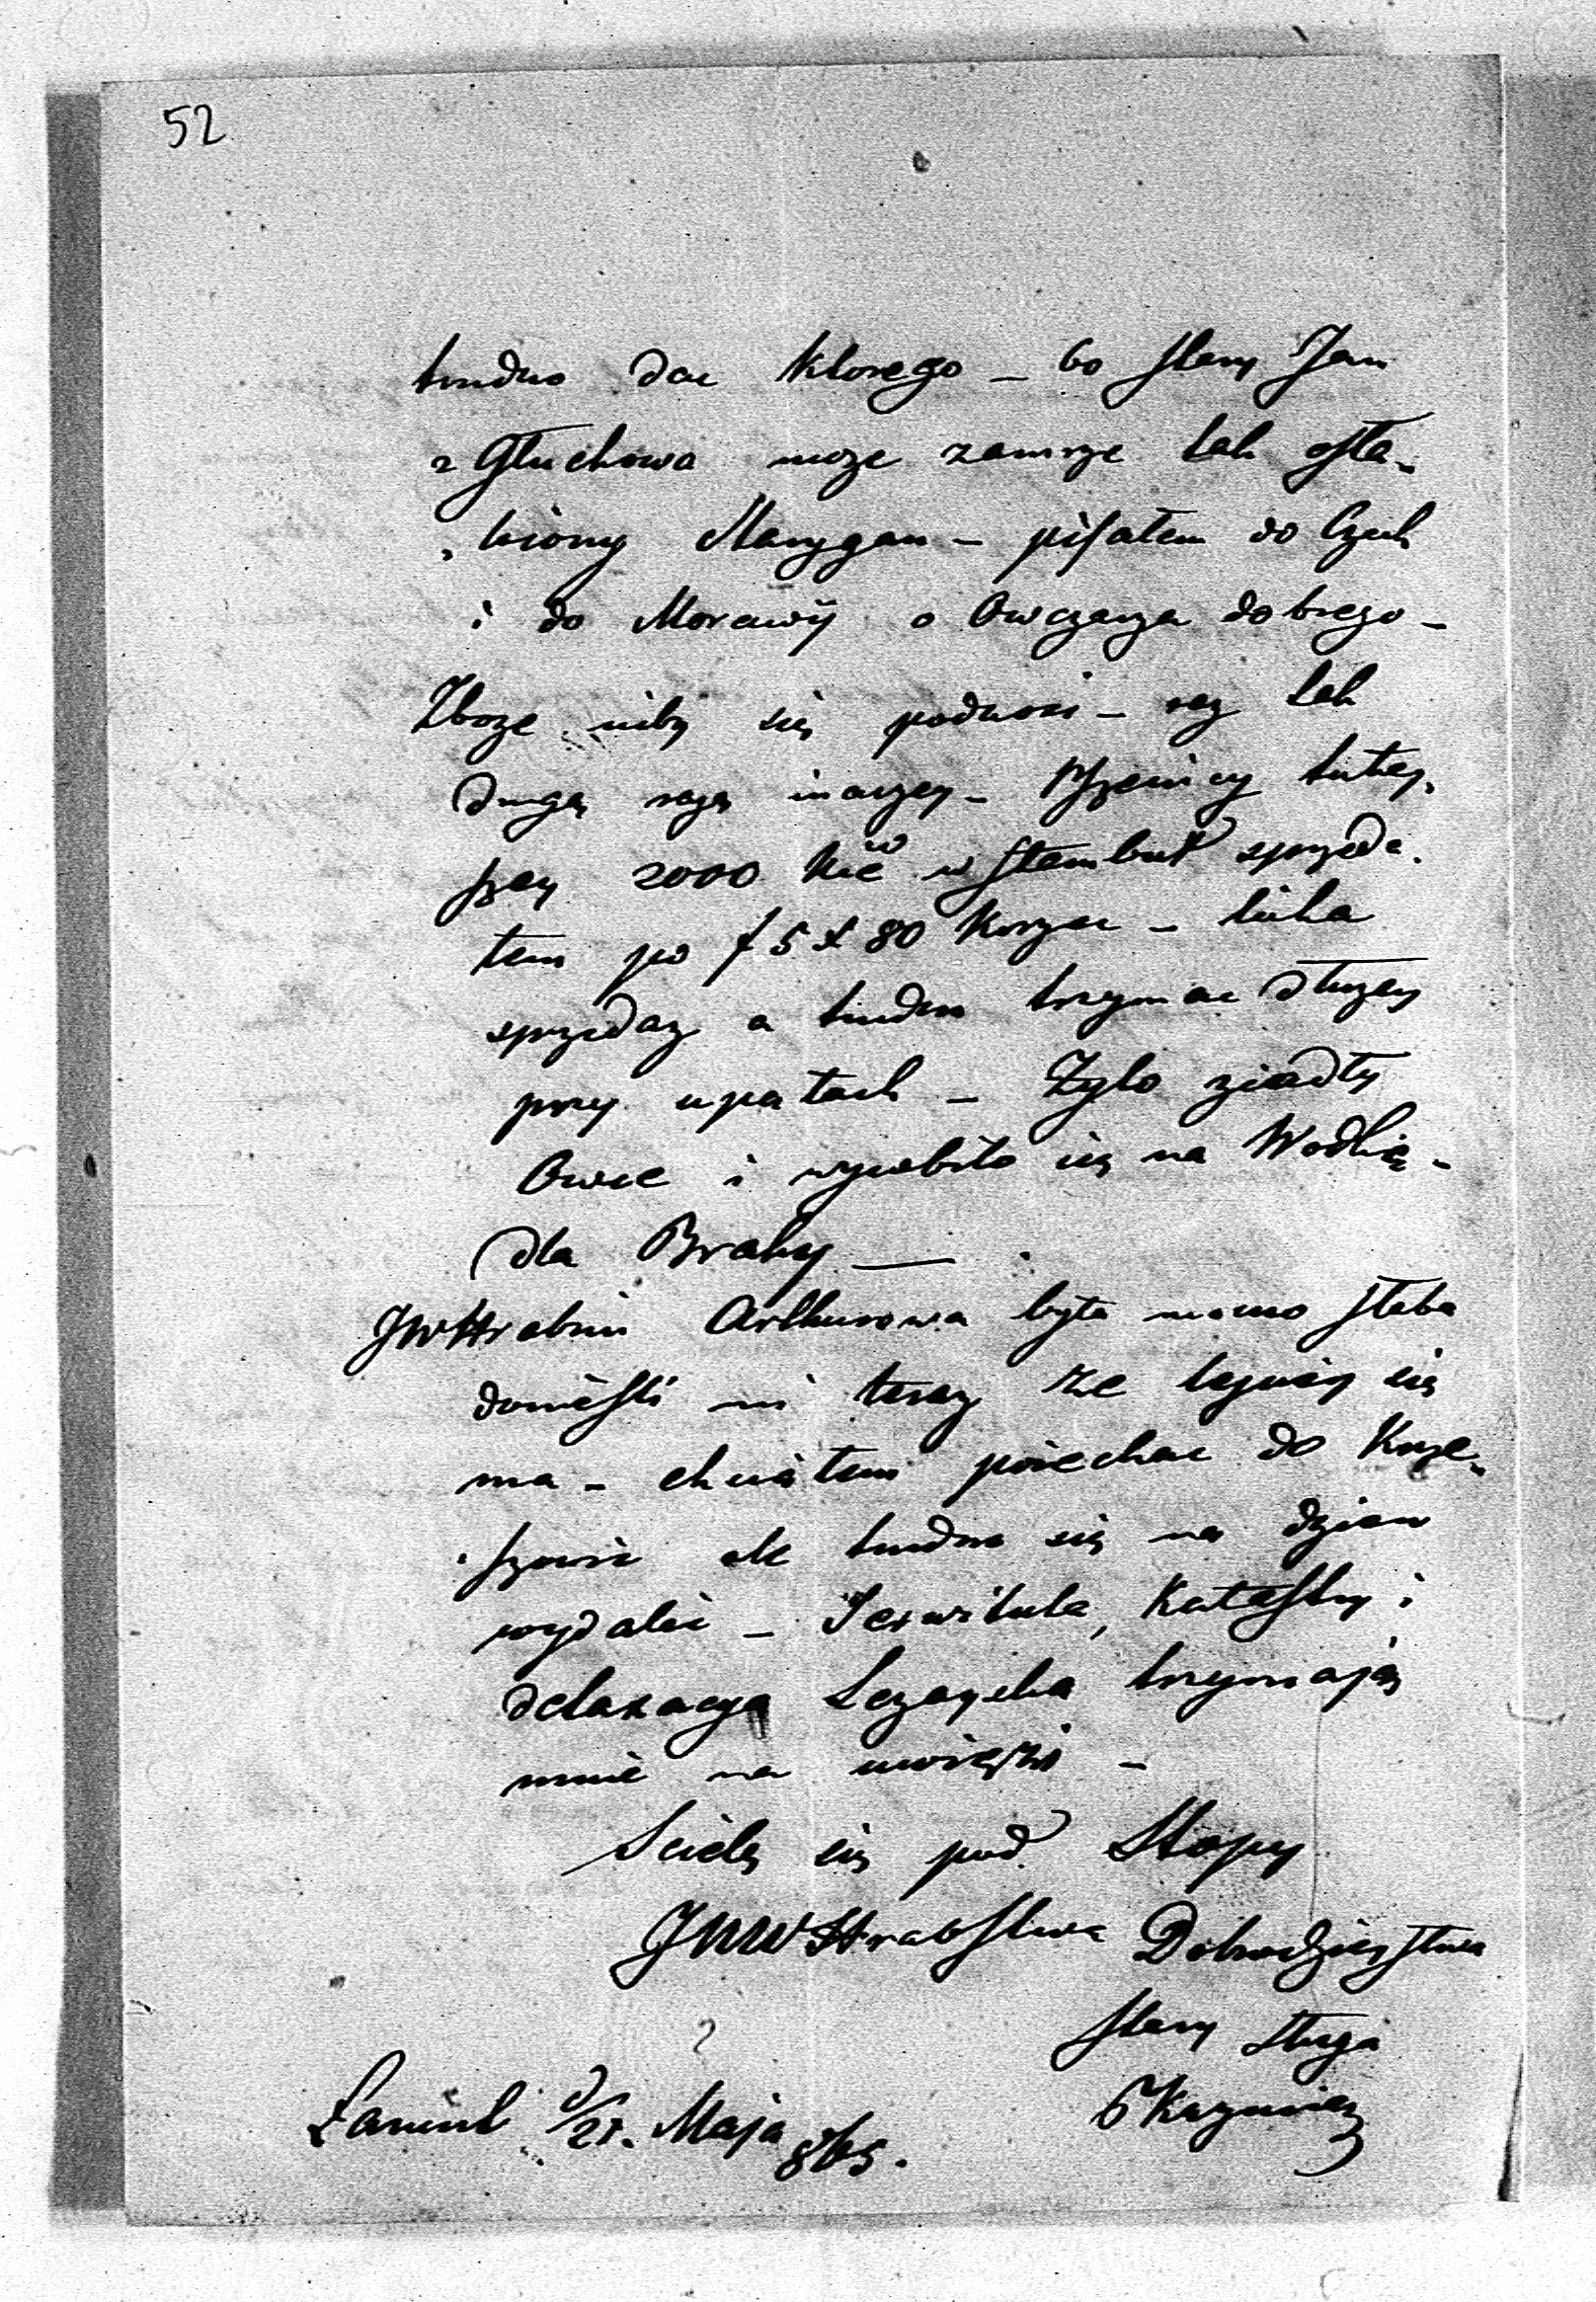 52
trudno dac ktorego – bo stary Jan
z Głuchowa moze zamrze tak osła„
„biony Marygan – pisałem do Czech
i do Morawij o Owczarza dobrego –
Zboze niby się podnosi – raz tak
drugą razą inaczey – Pszenicy tutey„
szey 2000 Kcẃ w Stambuł sprzeda„
łem po f 5 x 80 Korzec – licha
sprzedaz a trudno trzymac dłuzey
przy upałach – Zyto ziadły
Owce i wyrobiło się na Wodkię –
dla Brahy —
JWHrabini Arthurowa była mocno słaba
doniesli mi teraz ze lepiey się
ma – chciałem poiechac do Krze„
„szowic ale trudno się na dzien
wydalić – Serwituta, Katastry i
delaxacya Lezayska trzymają
mnie na uwięzi –
Scielę się pod Stopy
JWWHrabstwa Dobrodzieystwa
stary sługa
Kazmierz
Łancut d/21. Maja 865.